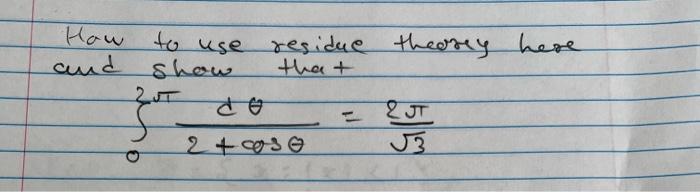 How to use residue theory here
and show that
∫₀^{2π} dθ / (2 + cosθ) = 2π / √3